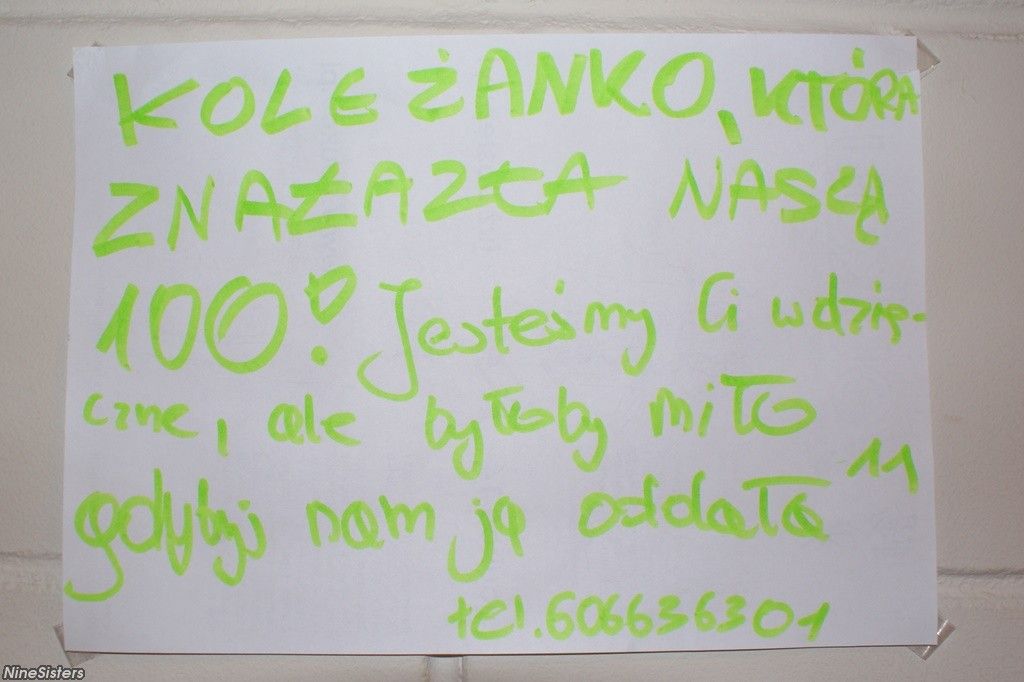 KOLEŻANKO, KTÓRA
ZNALAZŁA NASZĄ
100! Jesteśmy Ci wdzię-
czne, ale byłoby miło
gdybyś nam ją oddała 11
tel. 606636301
NineSisters